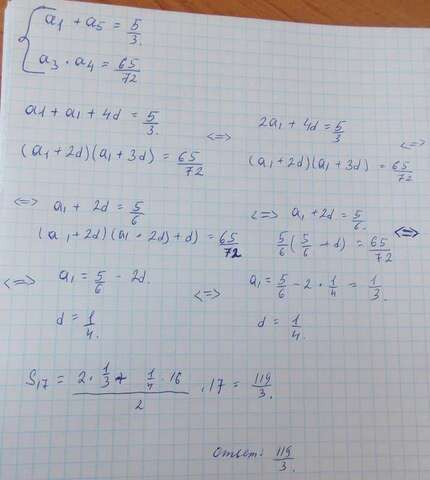 a1 + a5 = 5/3.
a3 · a4 = 65/72
a1 + a1 + 4d = 5/3. <=> 2a1 + 4d = 5/3 <=>
(a1 + 2d)(a1 + 3d) = 65/72 (a1 + 2d)(a1 + 3d) = 65/72
<=> a1 + 2d = 5/6 <=> a1 + 2d = 5/6. <=>
(a1 + 2d)(a1 + 2d) + d) = 65/72 5/6(5/6 + d) = 65/72
<=> a1 = 5/6 - 2d. <=> a1 = 5/6 - 2 · 1/4 = 1/3.
d = 1/4. d = 1/4.
S17 = (2 · 1/3 + 1/4 · 16)/2 · 17 = 119/3.
Ответ: 119/3.